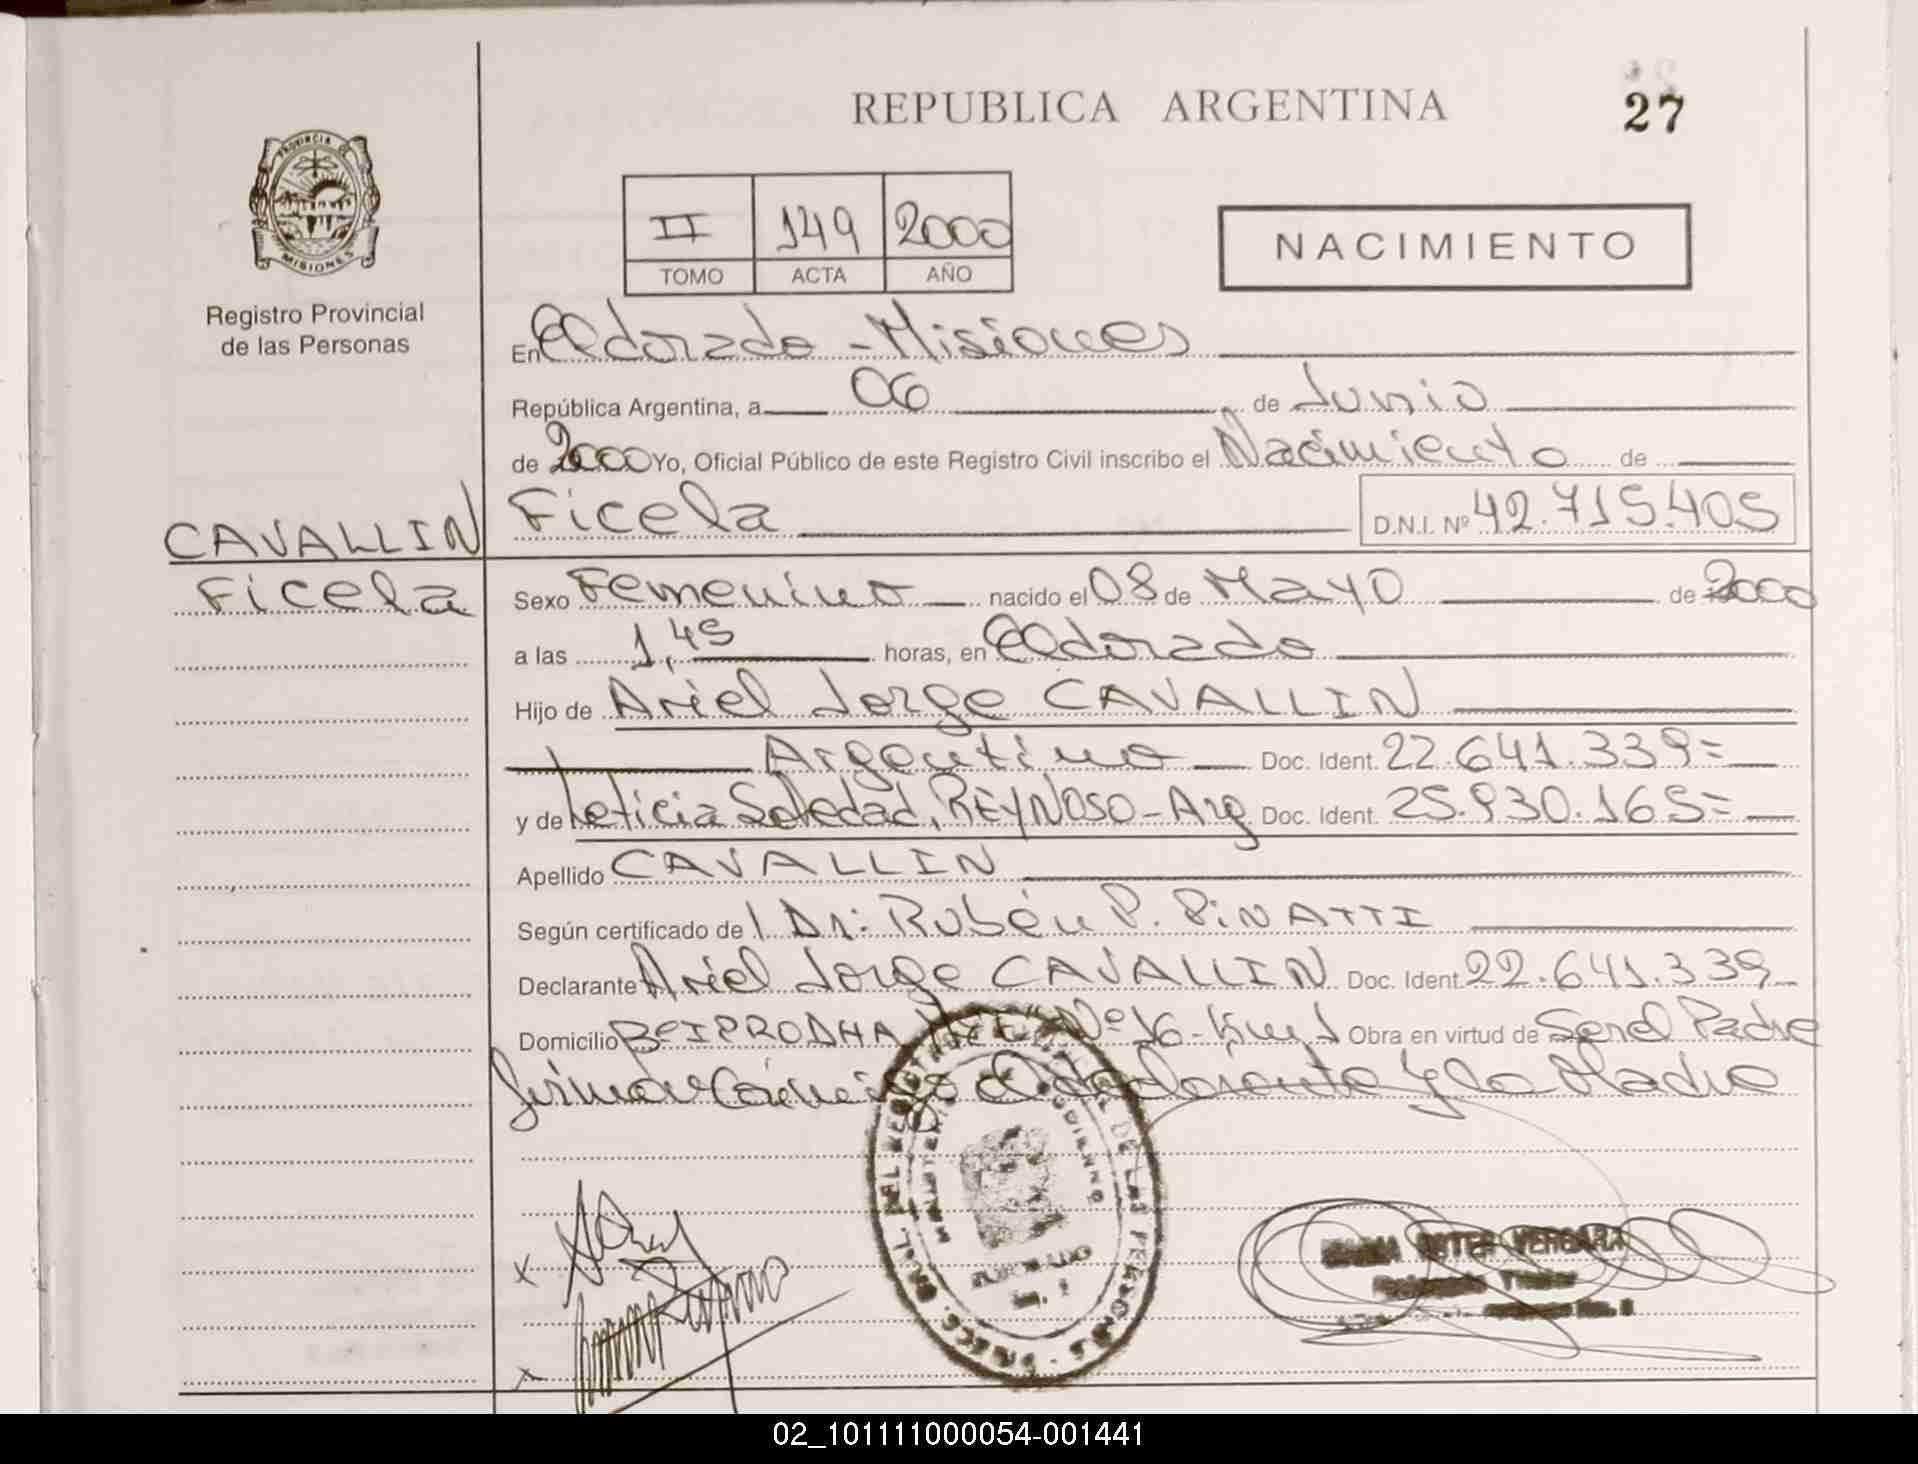 REPUBLICA ARGENTINA
27
PROVINCIA DE
MISIONES
Registro Provincial
de las Personas
II 149 2000
TOMO ACTA AÑO
NACIMIENTO
En Eldorado - Misiones
República Argentina, a 06 de Junio
de 2000 Yo, Oficial Público de este Registro Civil inscribo el Nacimiento de
Ficela D.N.I. Nº 42.715.405
CAVALLIN
Ficela
Sexo Femenino nacido el 08 de Mayo de 2000
a las 1,45 horas, en Eldorado
Hijo de Ariel Jorge CAVALLIN
Argentino Doc. Ident. 22.641.339=
y de Leticia Soledad, REYNOSO - Arg Doc. Ident. 25.930.165=
Apellido CAVALLIN
Según certificado de Dr: Rubén P. PiNATTI
Declarante Ariel Jorge CAVALLIN Doc. Ident. 22.641.339
Domicilio Bº IPRODHA Nº 16 - Km 1 Obra en virtud de Ser el Padre
firman el declarante y la Madre
DE LAS PERSONAS
VERGARA
02_101111000054-001441